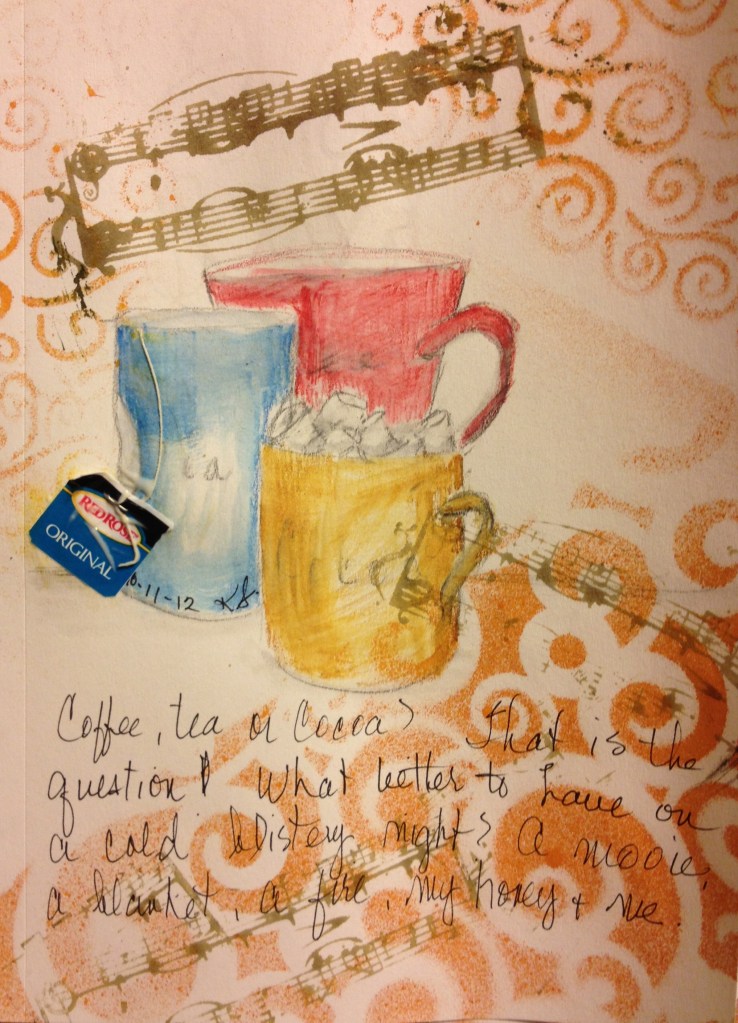 tea
REDROSE
ORIGINAL
-11-12 KS.
Coffee, tea or Cocoa? That is the
question! What better to have on
a cold blistery night? A movie,
a blanket, a fire, my honey & me.